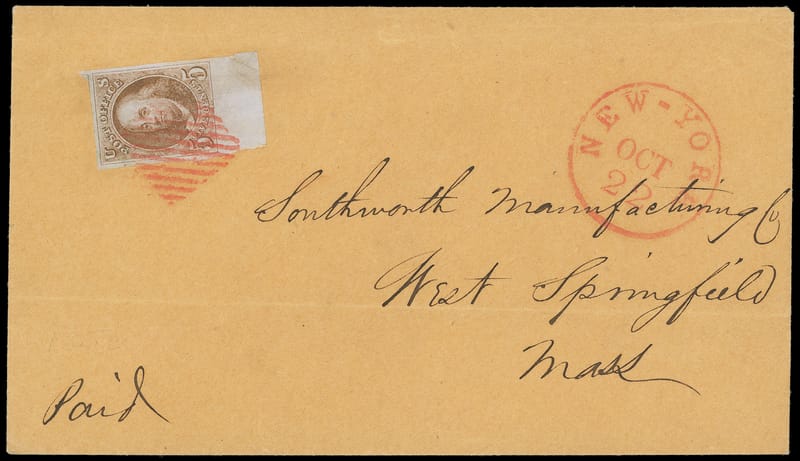 U POST OFFICE S
5
NEW-YORK
OCT
22
Southworth Manufacturing Co
West Springfield
Mass
Paid